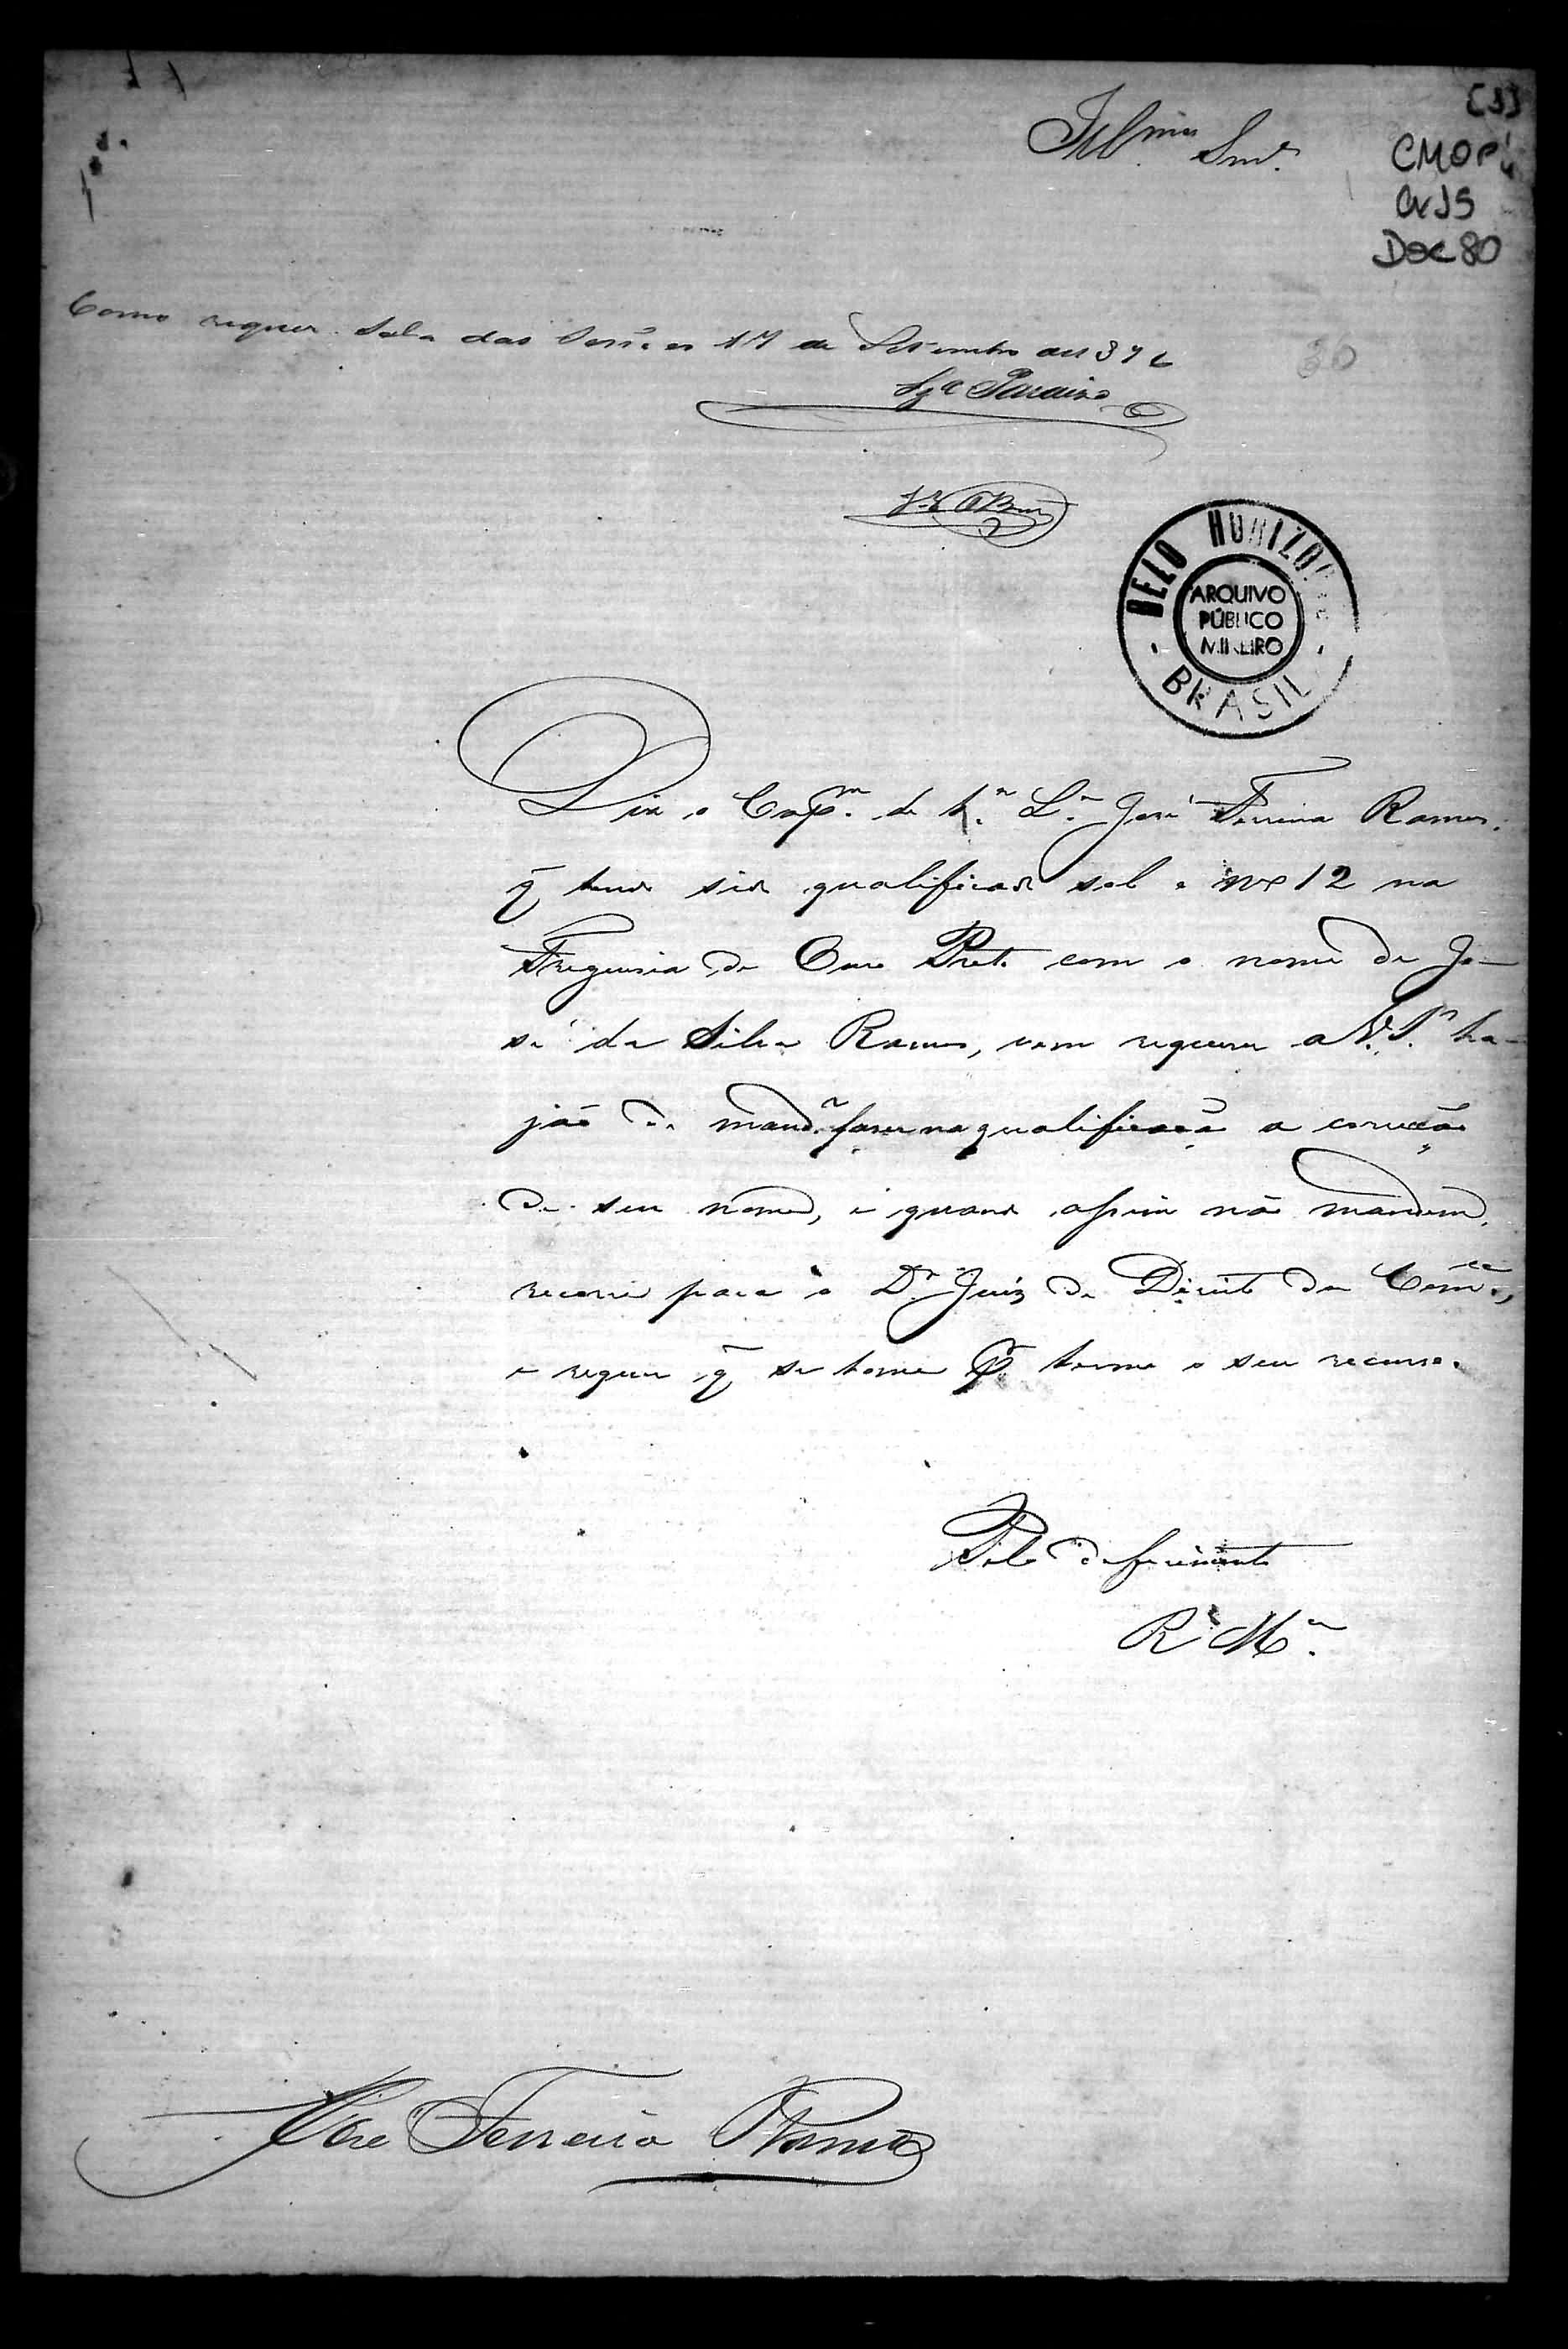 [1]
CMOP
Cx 15
Doc 80
Ill.mos Snr.es
Como requer. Sala das Sessões 17 de Setembro de 1876
30
BELO HORIZONTE
ARQUIVO
PÚBLICO
MINEIRO
BRASIL
Diz o Cap.m de 1.a L.a José Ferreira Ramos,
q̃ tendo sido qualificado sob o nº 12 na
Freguesia de Ouro Preto com o nome de Jo-
sé da Silva Ramos, vem requerer a V. S.as ha-
jão de mand.ar fazer na qualificação a correcção
de seu nome, e quando assim não mandem,
recorre para o D.r Juiz de Direito da Com.ca,
e requer q̃ se tome p.r termo o seu recurso.
Pede deferimento
R. M.ce
José Ferreira Ramos